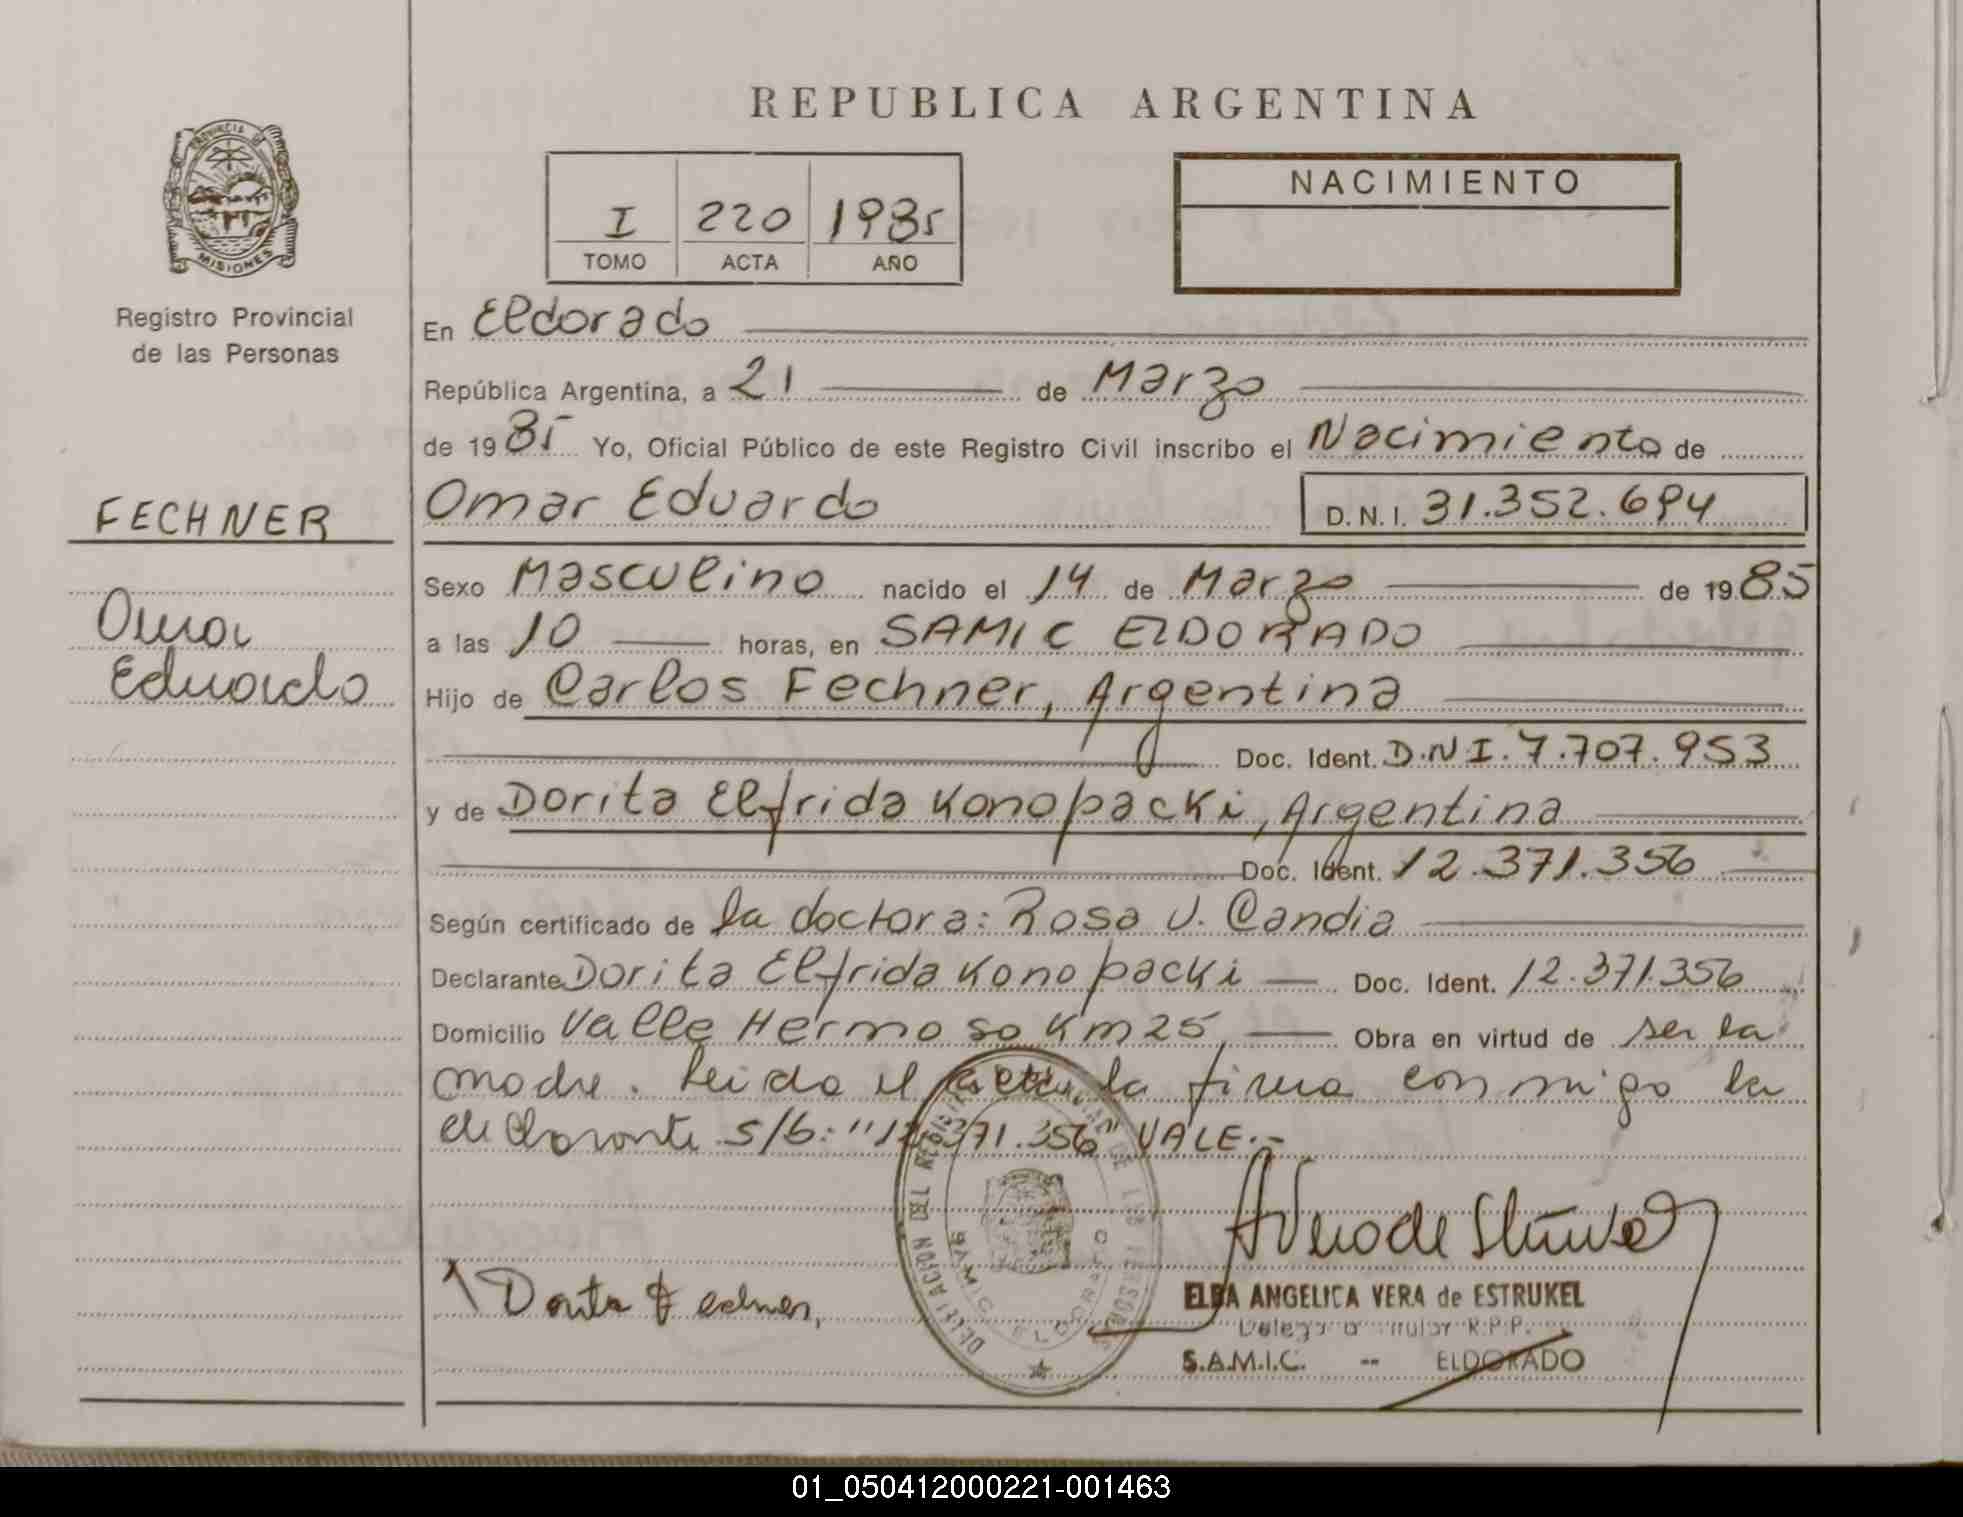 REPUBLICA ARGENTINA
PROVINCIA DE
MISIONES
Registro Provincial
de las Personas
I 220 1985
TOMO ACTA AÑO
NACIMIENTO
En Eldorado
República Argentina, a 21 de Marzo
de 1985 Yo, Oficial Público de este Registro Civil inscribo el Nacimiento de
FECHNER
Omar Eduardo D.N.I. 31.352.694
Omar
Eduardo
Sexo Masculino nacido el 14 de Marzo de 1985
a las 10 horas, en SAMIC ELDORADO
Hijo de Carlos Fechner, Argentina
Doc. Ident. D.N.I. 7.707.953
y de Dorita Elfrida Konopacki, Argentina
Doc. Ident. 12.371.356
Según certificado de la doctora: Rosa V. Candia
Declarante Dorita Elfrida Konopacki Doc. Ident. 12.371.356
Domicilio Valle Hermoso Km 25 Obra en virtud de ser la
madre. Leida el acta, la firma conmigo la
declarante. s/b: "12.371.356" VALE.-
Dorita Fechner,
DELEGACION DEL REGISTRO PROVINCIAL DE LAS PERSONAS
SAMIC ELDORADO
ELBA ANGELICA VERA de ESTRUKEL
Delegada Titular R.P.P.
S.A.M.I.C. -- ELDORADO
01_050412000221-001463